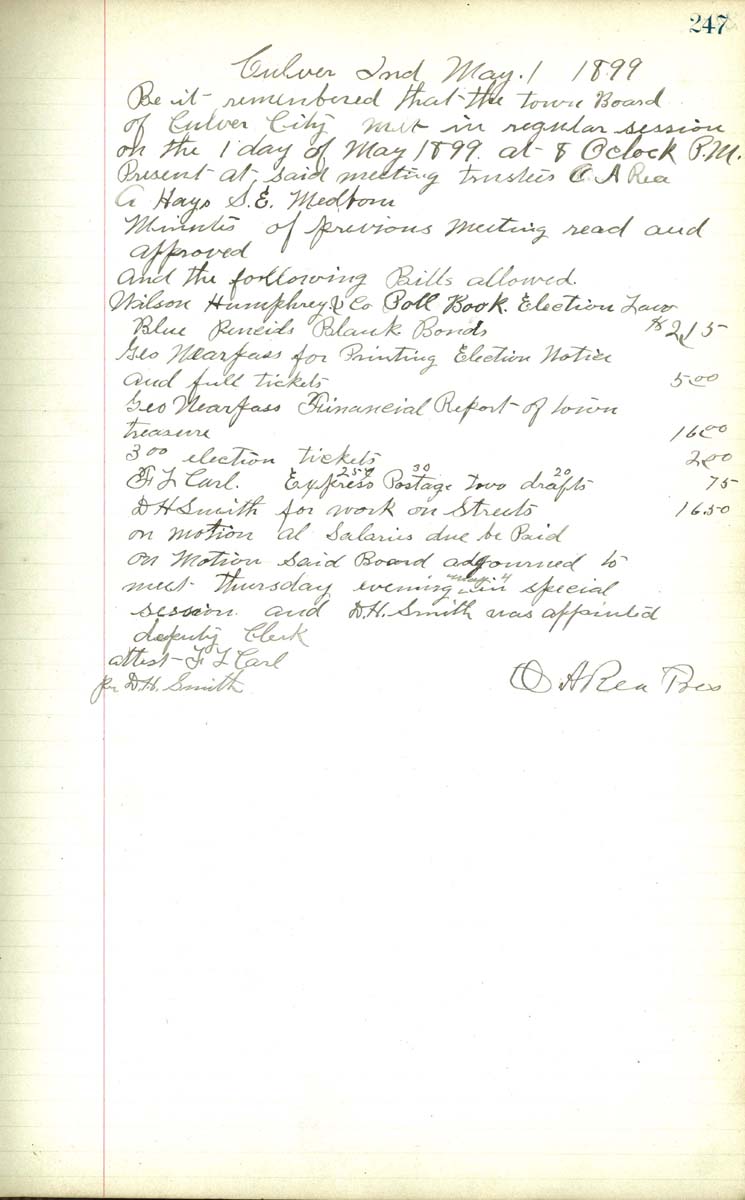 247
Culver Ind May. 1 1899
Be it remembered that the town Board
of Culver City met in regular session
on the 1 day of May 1899. at 8 Oclock P.M.
Present at said meeting trustees O. A Rea
A Hays S. E. Medborn
Minutes of previous meeting read and
approved
and the following Bills allowed.
Wilson Humphrey & Co Poll Book. Election Law
Blue Pencils Blank Bonds $2.15
Geo Nearpass for Printing Election Notice
and full tickets 5.00
Geo Nearpass Financial Report of town
treasure 16.00
300 election tickets 2.00
F L Carl. Express 25¢ Postage 30 two drafts 20 75
D H Smith for work on Streets 16.50
on motion al Salaries due be Paid
on Motion said Board adjourned to
meet thursday evening May 4 in special
session and D. H. Smith was appointed
deputy Clerk
attest F L Carl
per D. H. Smith O A Rea Pres